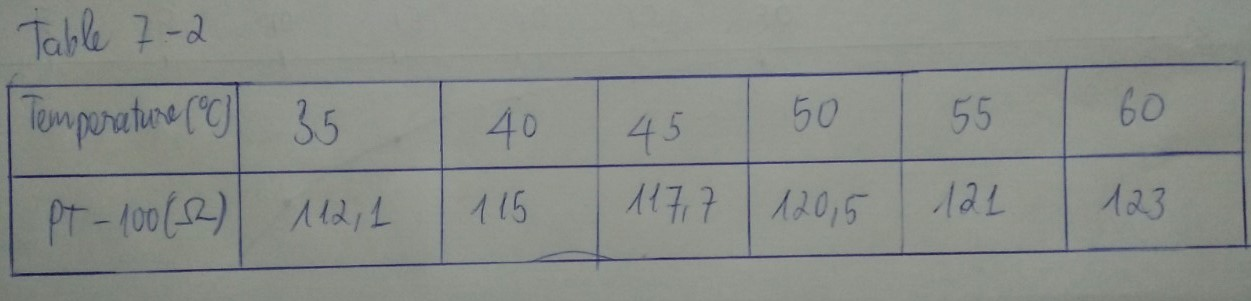 Table 7-2
Temperature (°C) 35 40 45 50 55 60
PT-100 (Ω) 112,1 115 117,7 120,5 121 123